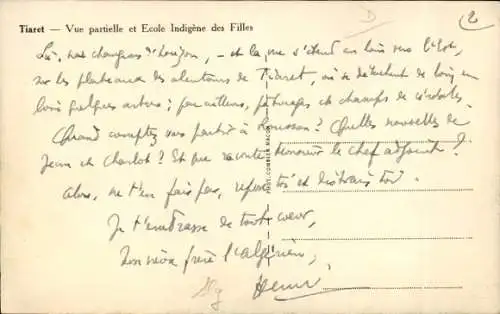 Tiaret — Vue partielle et Ecole Indigène des Filles
D
2
Ici, nous changeons d'horizon, - et la vue s'étend au loin vers l'Est,
sur les plateaux des alentours de Tiaret, où se détachent de loin en
loin quelques arbres ; par ailleurs, pâturages et champs de céréales.
Quand comptez vous partir à ? Quelles nouvelles de
Jean et Charlot ? Et que raconte monsieur le chef adjoint ?
Alors, ne t'en fais pas, repose toi et distrais toi.
Je t'embrasse de tout cœur,
Ton vieux frère l'algérien,
Henri
PHOT. COMBIER MACON